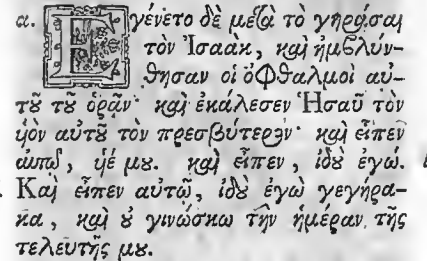 α. Ἐγένετο δὲ μετὰ τὸ γηράσαι
τὸν Ἰσαὰκ, καὶ ἠμβλύν-
θησαν οἱ ὀφθαλμοὶ αὐ-
τοῦ τοῦ ὁρᾷν· καὶ ἐκάλεσεν Ἡσαῦ τὸν
υἱὸν αὐτοῦ τὸν πρεσβύτερον· καὶ εἶπεν
αὐτῷ, υἱέ μου. καὶ εἶπεν, ἰδοὺ ἐγώ.
Καὶ εἶπεν αὐτῷ, ἰδοὺ ἐγὼ γεγήρα-
κα, καὶ οὐ γινώσκω τὴν ἡμέραν τῆς
τελευτῆς μου.